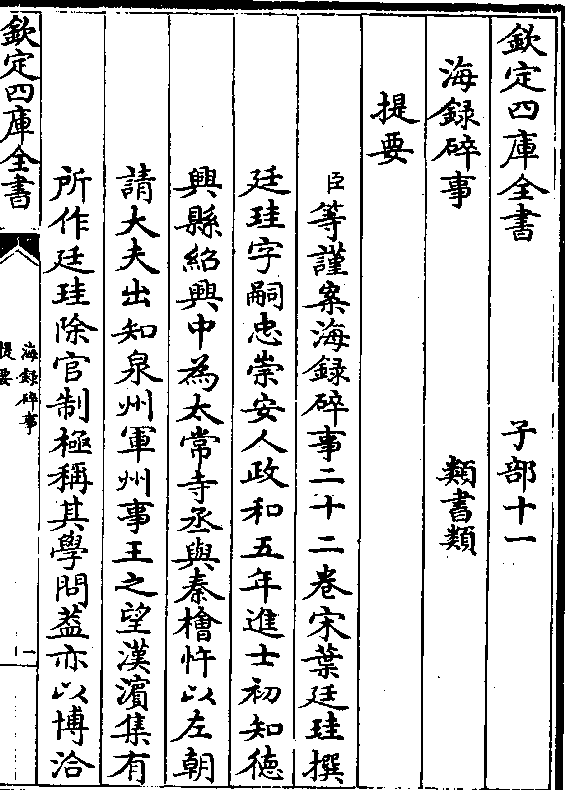 欽定四庫全書 子部十一
海録碎事 類書類
提要
臣等謹案海録碎事二十二卷宋葉廷珪撰
廷珪字嗣忠崇安人政和五年進士初知德
興縣紹興中為太常寺丞與秦檜忤以左朝
請大夫出知泉州軍州事王之望漢濵集有
所作廷珪除官制極稱其學問葢亦以博洽
欽定四庫全書
海録碎事
提要
一